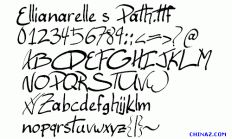 Ellianarelle s Path.ttf
0123456784:;<=>?@
ABCDEFGHIJKLM
NOPQRSTUVW
XYZabcdefghijklm
nopqrstuvwxyz{|}~
CHINAZ.COM